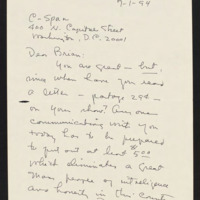 9-1-94
C-Span
400 N. Capitol Street
Washington, D.C. 20001
Dear Brian:
You are great - but,
since when have you read
a letter - postage 29¢ -
on your show? Any one
communicating with you
today has to be prepared
to put out at least $5.00
which eliminates a great
many people of intelligence
and honesty in this County